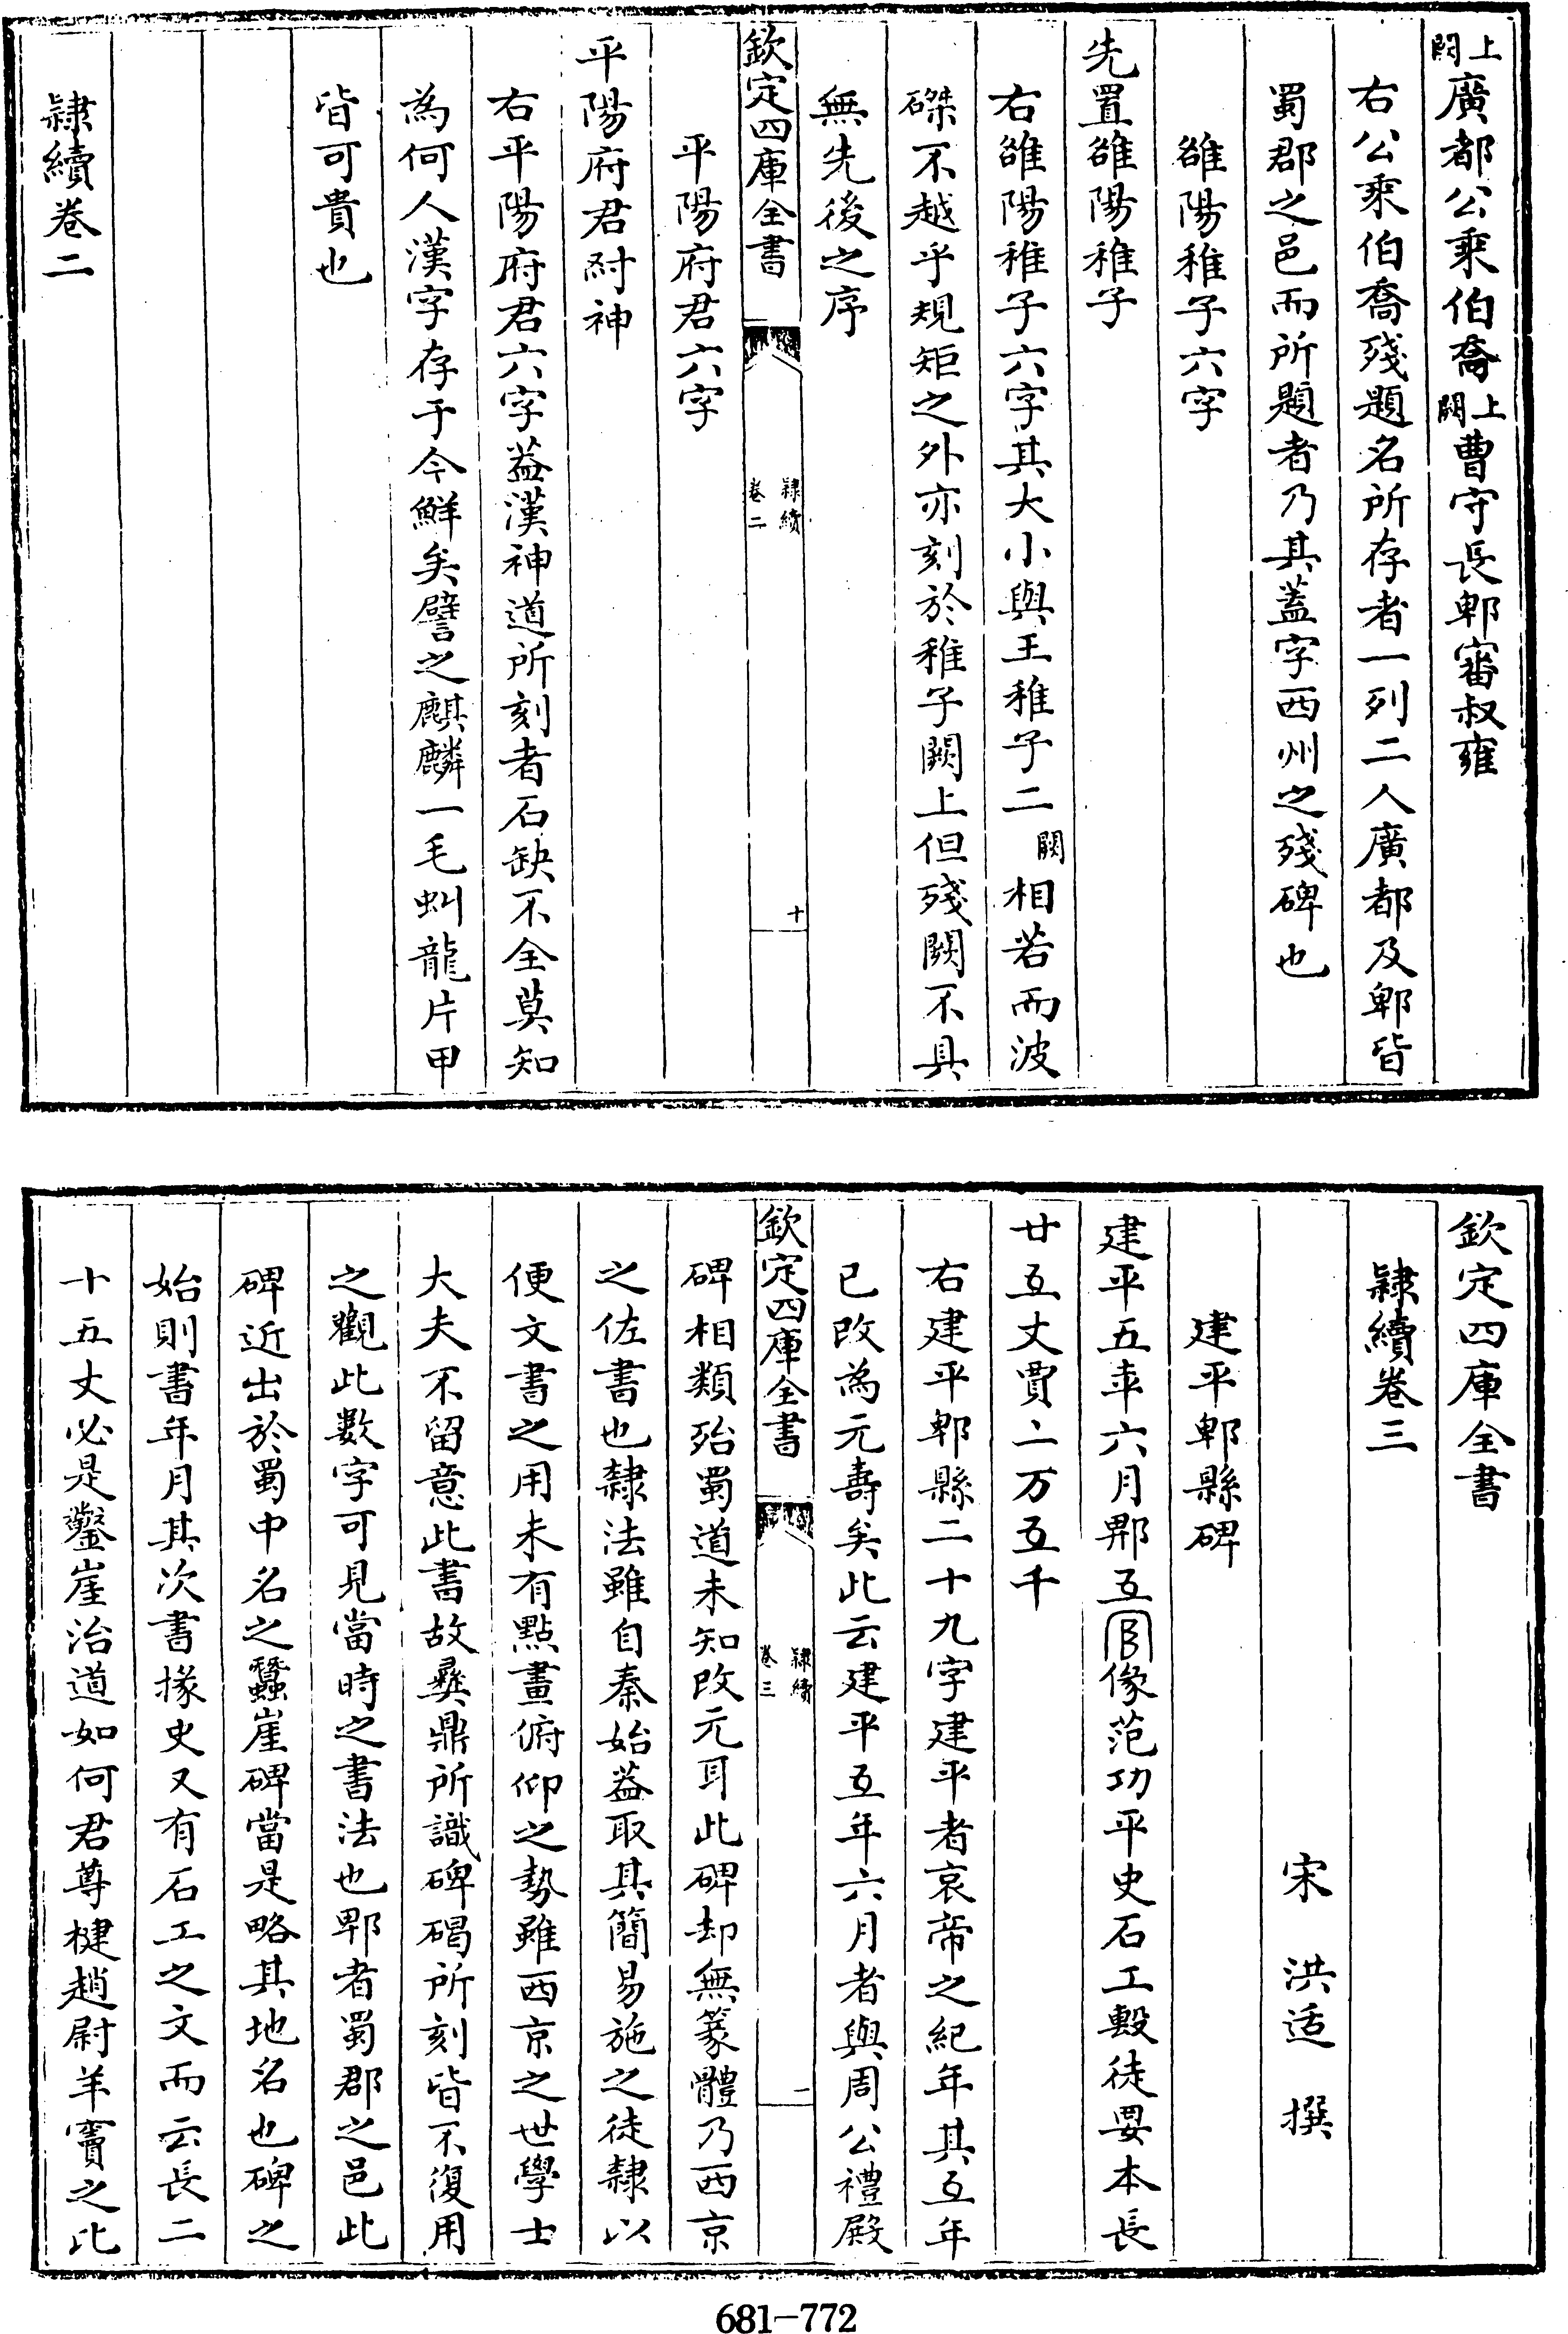 上闕廣都公乘伯喬上闕曹守長郫審叔雍
右公乘伯喬殘題名所存者一列二人廣都及郫皆
蜀郡之邑而所題者乃其蓋字西州之殘碑也
雒陽稚子六字
先置雒陽稚子
右雒陽稚子六字其大小與王稚子二闕相若而波
磔不越乎規矩之外亦刻於稚子闕上但殘闕不具
無先後之序
欽定四庫全書
隸續
卷二
十
平陽府君六字
平陽府君
神
右平陽府君六字葢漢神道所刻者石缺不全莫知
為何人漢字存于今鮮矣譬之麒麟一毛虯龍片甲
皆可貴也
隸續卷二
欽定四庫全書
隸續卷三
宋 洪适 撰
建平郫縣碑
建平五年六月郫五官掾范功平史石工㲄徒要本長
廿五丈賈二万五千
右建平郫縣二十九字建平者哀帝之紀年其五年
已改為元壽矣此云建平五年六月者與周公禮殿
欽定四庫全書
隸續
卷三
一
碑相類殆蜀道未知改元耳此碑却無篆體乃西京
之佐書也隸法雖自秦始葢取其簡易施之徒隸以
便文書之用未有點畫俯仰之勢雖西京之世學士
大夫不留意此書故彝鼎所識碑碣所刻皆不復用
之觀此數字可見當時之書法也郫者蜀郡之邑此
碑近出於蜀中名之蠶崖碑當是略其地名也碑之
始則書年月其次書掾史又有石工之文而云長二
十五丈必是鑿崖治道如何君尊楗趙尉羊竇之比
681-772